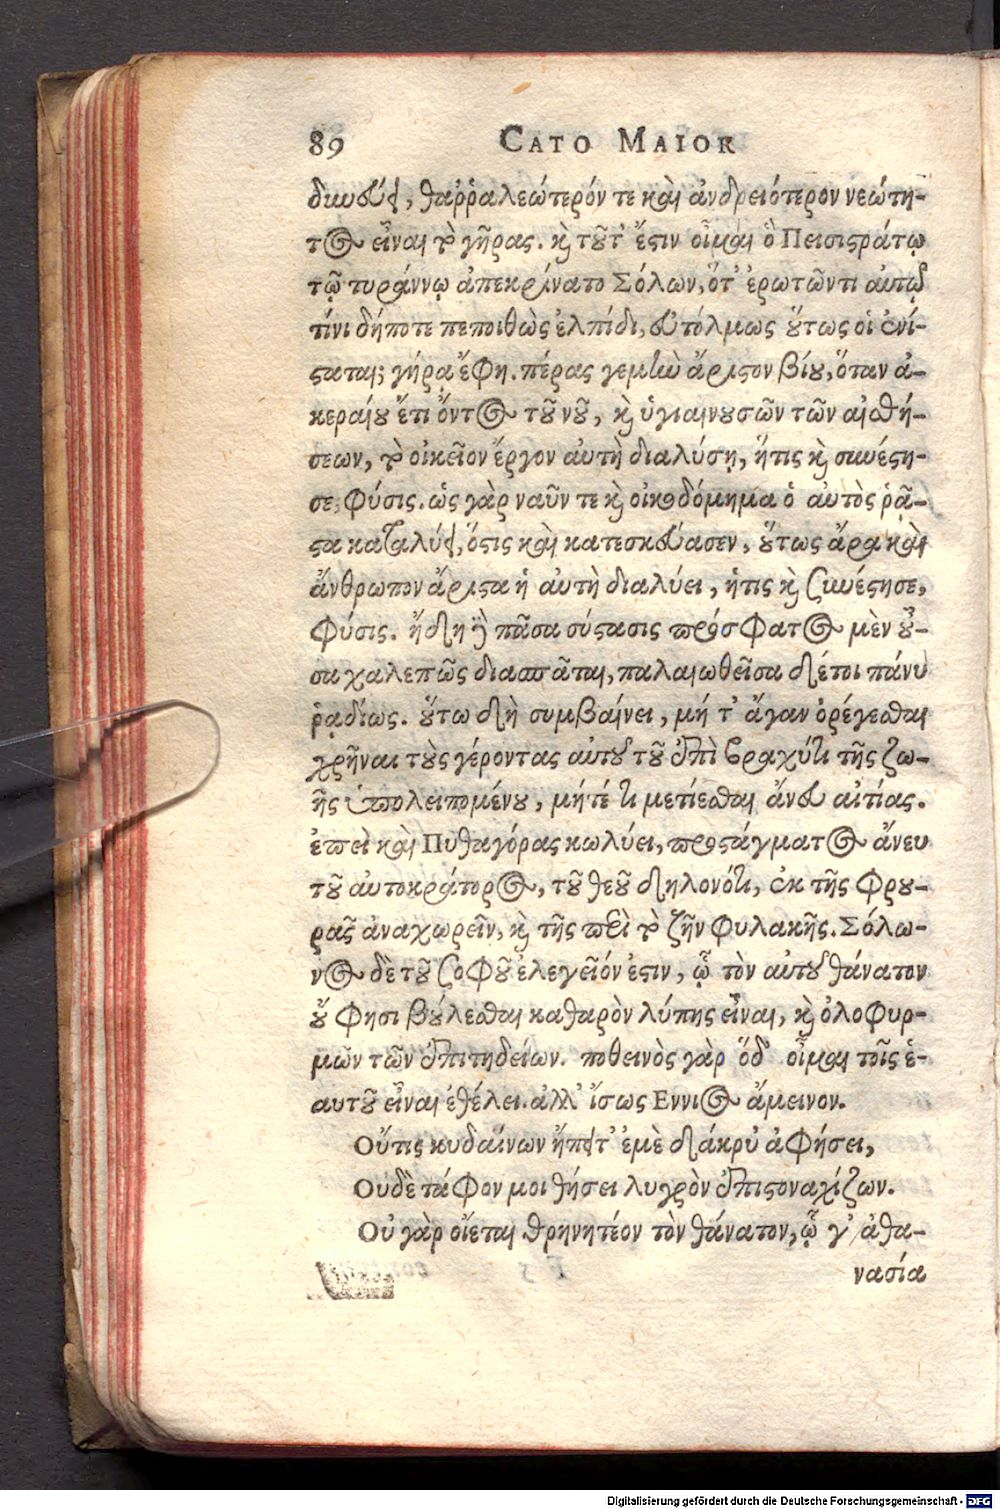 89 CATO MAIOR
δικυεύει, θαῤῥαλεώτερόν τε καὶ ἀνδρειότερον νεώτη-
τος εἶναι τὸ γῆρας. καὶ τοῦτ' ἔστιν οἶμαι ὃ Πεισιστράτῳ
τῷ τυράννῳ ἀπεκρίνατο Σόλων, ὅτ' ἐρωτῶντι αὐτῷ
τίνι δήποτε πεποιθὼς ἐλπίδι, εὐτόλμως οὕτως οἱ ἐνί-
σταται; γήρᾳ ἔφη. πέρας γεμὴν ἄριστον βίου, ὅταν ἀ-
κεραίου ἔτι ὄντος τοῦ νοῦ, καὶ ὑγιαινουσῶν τῶν αἰσθή-
σεων, τὸ οἰκεῖον ἔργον αὐτὴ διαλύσῃ, ἥτις καὶ συνέστη-
σε, φύσις. ὡς γὰρ ναῦν τε καὶ οἰκοδόμημα ὁ αὐτὸς ῥᾷ-
στα καταλύει, ὅστις καὶ κατεσκεύασεν, οὕτως ἄρα καὶ
ἄνθρωπον ἄριστα ἡ αὐτὴ διαλύει, ἥτις καὶ συνέστησε,
φύσις. ἤδη γὰρ πᾶσα σύστασις πρόσφατος μὲν οὖ-
σα χαλεπῶς διασπᾶται, παλαιωθεῖσα δέτοι πάνυ
ῥᾳδίως. οὕτω δὴ συμβαίνει, μή τ' ἄγαν ὀρέγεσθαι
χρῆναι τοὺς γέροντας αὐτοῦ τοῦ ἐπὶ βραχύτι τῆς ζω-
ῆς ὑπολειπομένου, μήτέ τι μετίεσθαι ἄνευ αἰτίας.
ἐπεὶ καὶ Πυθαγόρας κωλύει, προστάγματος ἄνευ
τοῦ αὐτοκράτορος, τοῦ θεοῦ δηλονότι, ἐκ τῆς φρου-
ρᾶς ἀναχωρεῖν, καὶ τῆς περὶ τὸ ζῆν φυλακῆς. Σόλω-
νος δὲ τοῦ σοφοῦ ἐλεγεῖόν ἐστιν, ᾧ τὸν αὐτοῦ θάνατον
οὔ φησι βούλεσθαι καθαρὸν λύπης εἶναι, καὶ ὀλοφυρ-
μῶν τῶν ἐπιτηδείων. ποθεινὸς γὰρ ὅδ' οἶμαι τοῖς ἑ-
αυτοῦ εἶναι ἐθέλει. ἀλλ' ἴσως Εννιος ἄμεινον.
Οὔτις κυδαίνων ἤπειτ' ἐμὲ δάκρῦ ἀφήσει,
Ουδὲ τάφον μοι θήσει λυγρὸν ἐπιστοναχίζων.
Οὐ γὰρ οἴεται θρηνητέον τὸν θάνατον, ᾧ γ' ἀθα-
νασία
Digitalisierung gefördert durch die Deutsche Forschungsgemeinschaft - DFG